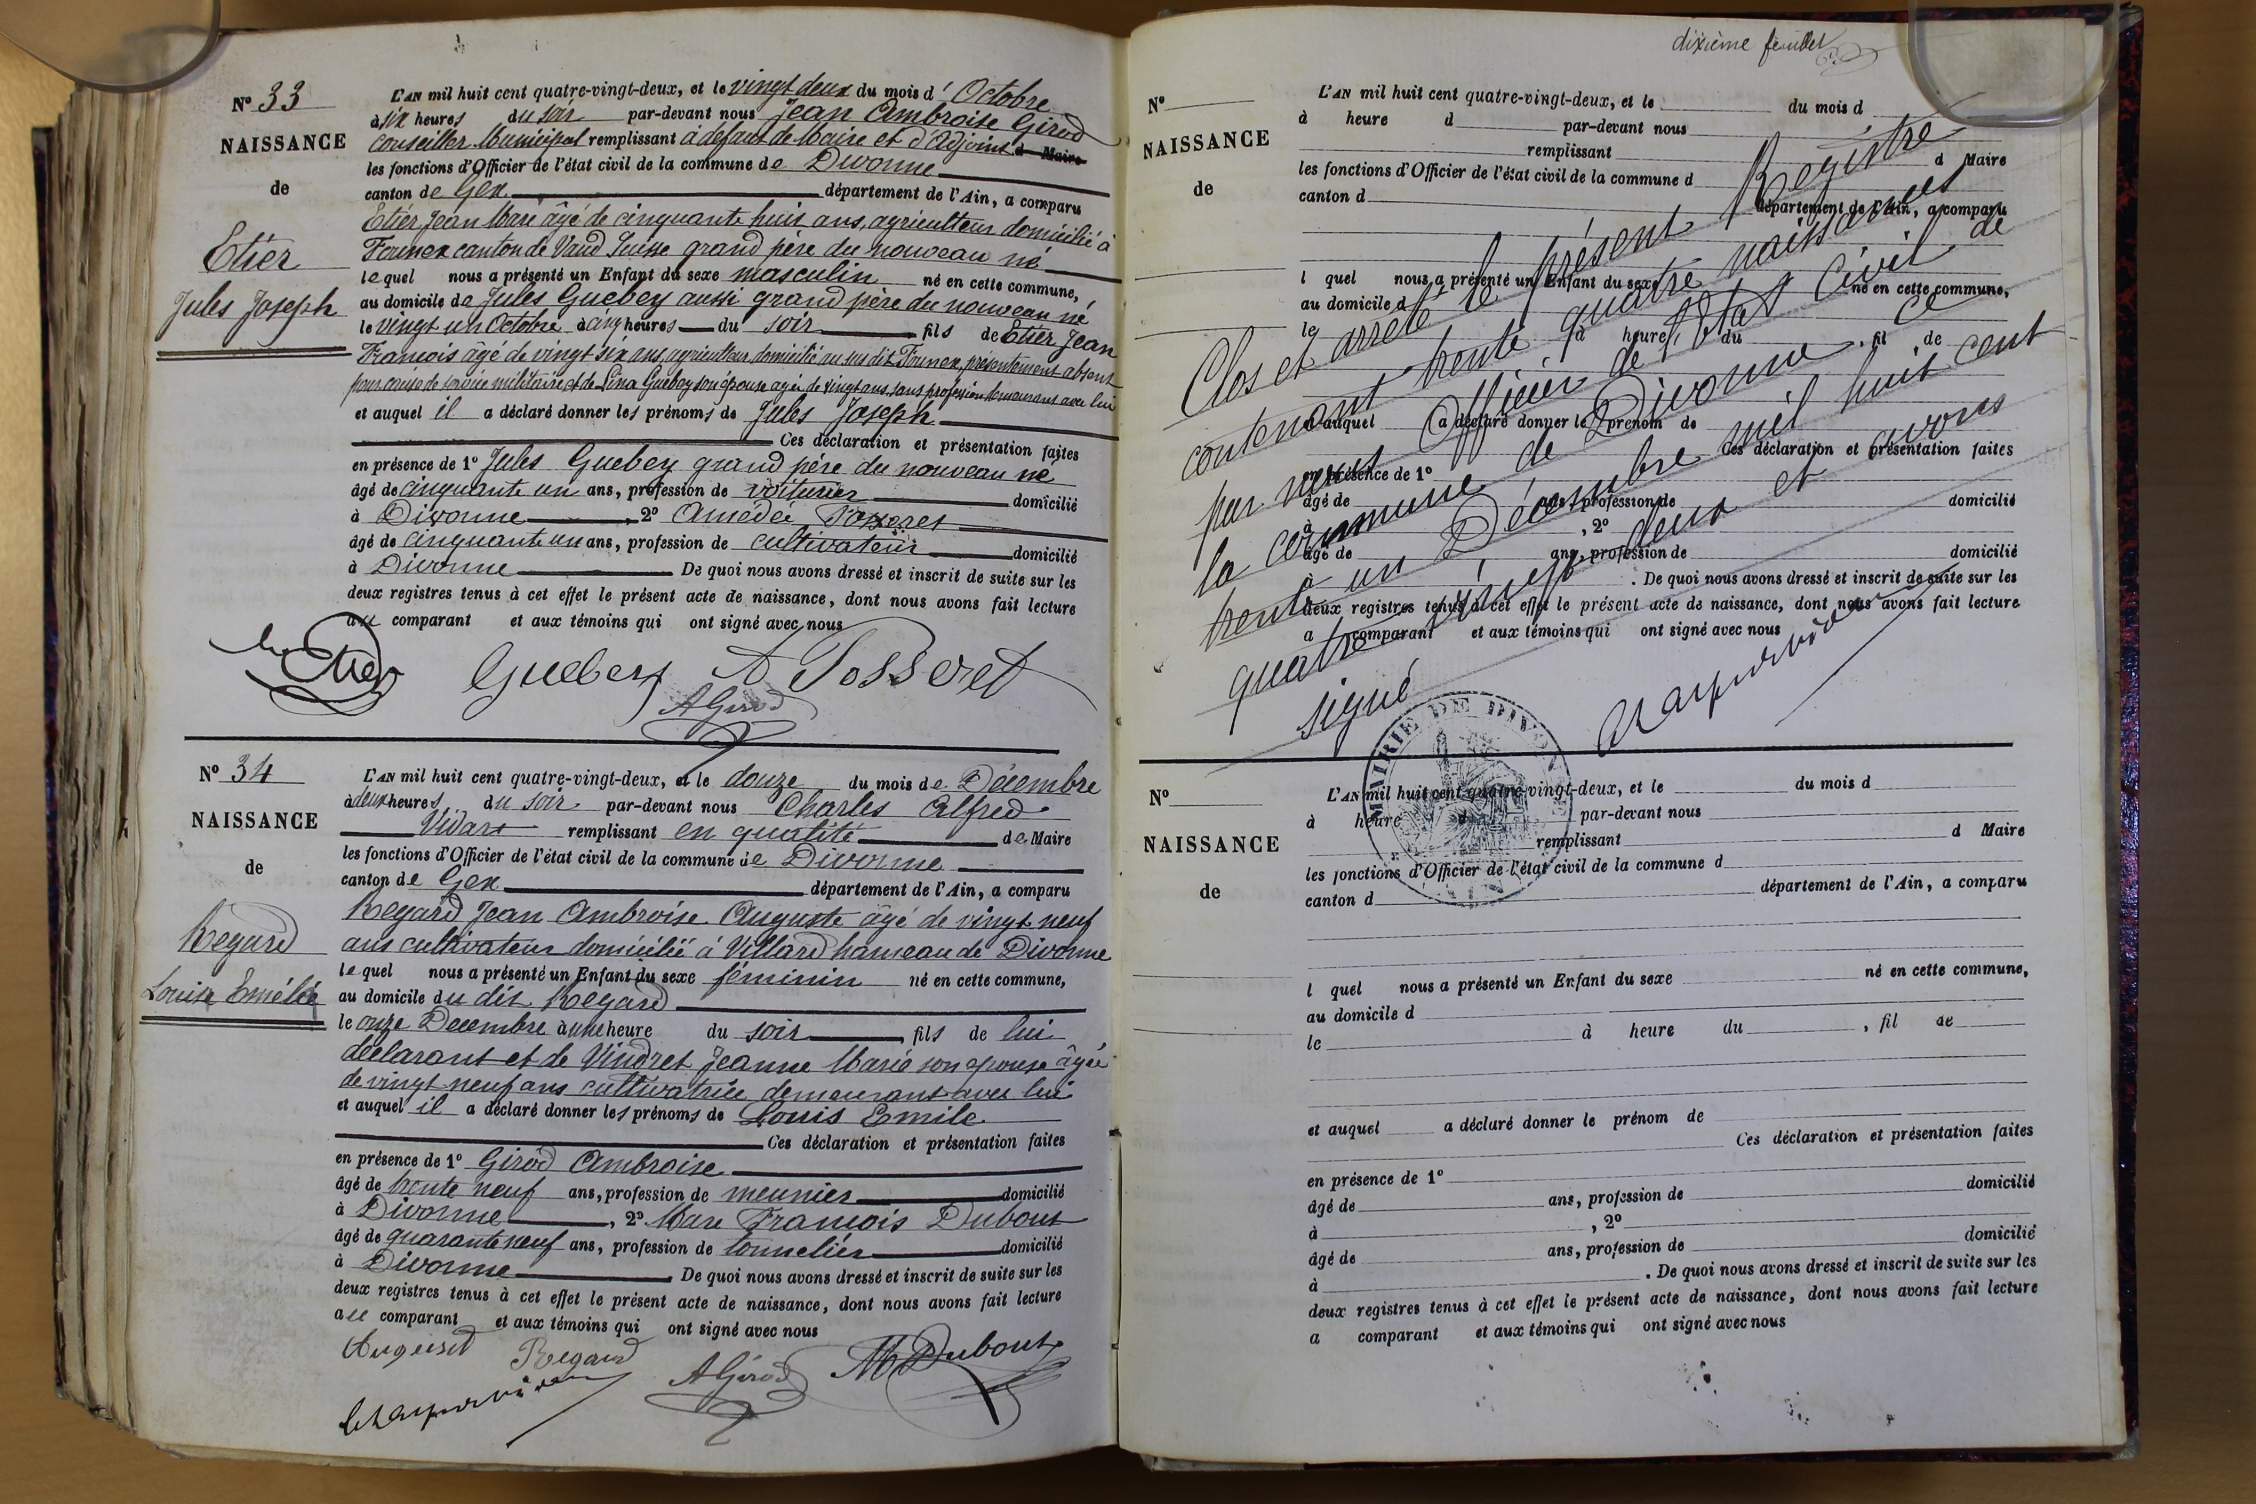 N° 33
NAISSANCE
de
Etiér
Jules Joseph
L'AN mil huit cent quatre-vingt-deux, et le vingt deux du mois d' Octobre
à six heures du soir par-devant nous Jean Ambroise Girod
Conseiller Municipal remplissant à défaut de Maire et d'Adjoint d Maire
les fonctions d'Officier de l'état civil de la commune de Divonne
canton de Gex département de l'Ain, a comparu
Etiér Jean Marc âgé de cinquante huit ans, agriculteur domicilié à
Founex canton de Vaud Suisse grand père du nouveau né
lequel nous a présenté un Enfant du sexe masculin né en cette commune,
au domicile de Jules Guebey aussi grand père du nouveau né
le vingt un Octobre à cinq heures du soir fils de Etiér Jean
François âgé de vingt six ans, agriculteur domicilié au sus dit Founex, présentement absent
pour cause de service militaire et de Lina Guebey son épouse agée de vingt ans, sans profession demeurant avec lui
et auquel il a déclaré donner les prénoms de Jules Joseph
Ces déclaration et présentation faites
en présence de 1° Jules Guebey grand père du nouveau né
âgé de cinquante un ans, profession de voiturier domicilié
à Divonne, 2° Amédée Posseret
âgé de cinquante un ans, profession de cultivateur domicilié
à Divonne De quoi nous avons dressé et inscrit de suite sur les
deux registres tenus à cet effet le présent acte de naissance, dont nous avons fait lecture
au comparant et aux témoins qui ont signé avec nous
Etier Guebey A Posseret
AGirod
N° 34
NAISSANCE
de
Regard
Louise Emélie
L'AN mil huit cent quatre-vingt-deux, et le douze du mois de Décembre
à deux heures du soir par-devant nous Charles Alfred
Vidart remplissant en qualité de Maire
les fonctions d'Officier de l'état civil de la commune de Divonne
canton de Gex département de l'Ain, a comparu
Regard Jean Ambroise Auguste âgé de vingt neuf
ans cultivateur domicilié à Villard hameau de Divonne
lequel nous a présenté un Enfant du sexe féminin né en cette commune,
au domicile du dit Regard
le onze Decembre à une heure du soir, fils de lui
déclarant et de Vindret Jeanne Marie son epouse âgée
de vingt neuf ans cultivatrice demeurant avec lui
et auquel il a déclaré donner les prénoms de Louis Emile
Ces déclaration et présentation faites
en présence de 1° Girod Ambroise
âgé de trente neuf ans, profession de meunier domicilié
à Divonne, 2° Marc François Dubout
âgé de quarante neuf ans, profession de tonnelier domicilié
à Divonne. De quoi nous avons dressé et inscrit de suite sur les
deux registres tenus à cet effet le présent acte de naissance, dont nous avons fait lecture
au comparant et aux témoins qui ont signé avec nous
August Regard AGirod M Dubout
dixième feuillet
N°
NAISSANCE
de
L'AN mil huit cent quatre-vingt-deux, et le du mois d
à heure d par-devant nous
remplissant d Maire
les fonctions d'Officier de l'état civil de la commune d
canton d département de l'Ain, a comparu
l quel nous a présenté un Enfant du sexe né en cette commune,
au domicile d
le à heure du, fil de
et auquel a déclaré donner le prénom de
Ces déclaration et présentation faites
en présence de 1°
âgé de ans, profession de domicilié
à , 2°
âgé de ans, profession de domicilié
à . De quoi nous avons dressé et inscrit de suite sur les
deux registres tenus à cet effet le présent acte de naissance, dont nous avons fait lecture
a comparant et aux témoins qui ont signé avec nous
Clos et arrêté le présent Registre
contenant trente quatre naissances
par nous Officier de l'Etat Civil de
la commune de Divonne ce
trente un Décembre mil huit cent
quatre vingt deux et avons
signé
MAIRIE DE DIVONNE
AIN
N°
NAISSANCE
de
L'AN mil huit cent quatre-vingt-deux, et le du mois d
à heure d par-devant nous
remplissant d Maire
les fonctions d'Officier de l'état civil de la commune d
canton d département de l'Ain, a comparu
l quel nous a présenté un Enfant du sexe né en cette commune,
au domicile d
le à heure du , fil de
et auquel a déclaré donner le prénom de
Ces déclaration et présentation faites
en présence de 1°
âgé de ans, profession de domicilié
à , 2°
âgé de ans, profession de domicilié
à . De quoi nous avons dressé et inscrit de suite sur les
deux registres tenus à cet effet le présent acte de naissance, dont nous avons fait lecture
a comparant et aux témoins qui ont signé avec nous